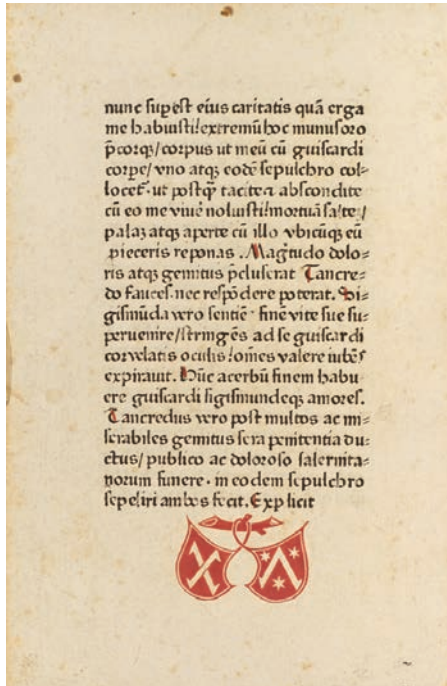 nunc suꝑest eius caritatis quā erga
me habuisti! extremū hoc munus oro
p̄corqʒ/ corpus ut meū cū guiscardi
corꝑe/ vno atqʒ eodē sepulchro col⸗
locet᷑. ut postq̄ᷓ tacite a abscondite
cū eo me viuē noluisti! mortuā salte/
palaʒ atqʒ aperte cū illo vbicūqʒ eū
pieceris reponas. Mag̃tudo dolo⸗
ris atqʒ gemitus p̄cluserat Tancre⸗
do fauces. nec respōdere poterat. Si⸗
gismūda vero sentiē᷒ finē vite sue su⸗
peruenire/ stringēs ad se guiscardi
cor velatis oculis! om̄es valere iubēs
expirauit. Hūc acerbū finem habu⸗
ere guiscardi sigismundeqʒ amores.
Tancredus vero post multos ac mi⸗
serabiles gemitus sera penitentia du⸗
ctus/ publico ac doloroso salernita⸗
norum funere. in eodem sepulchro
sepeliri ambos fecit. Explicit